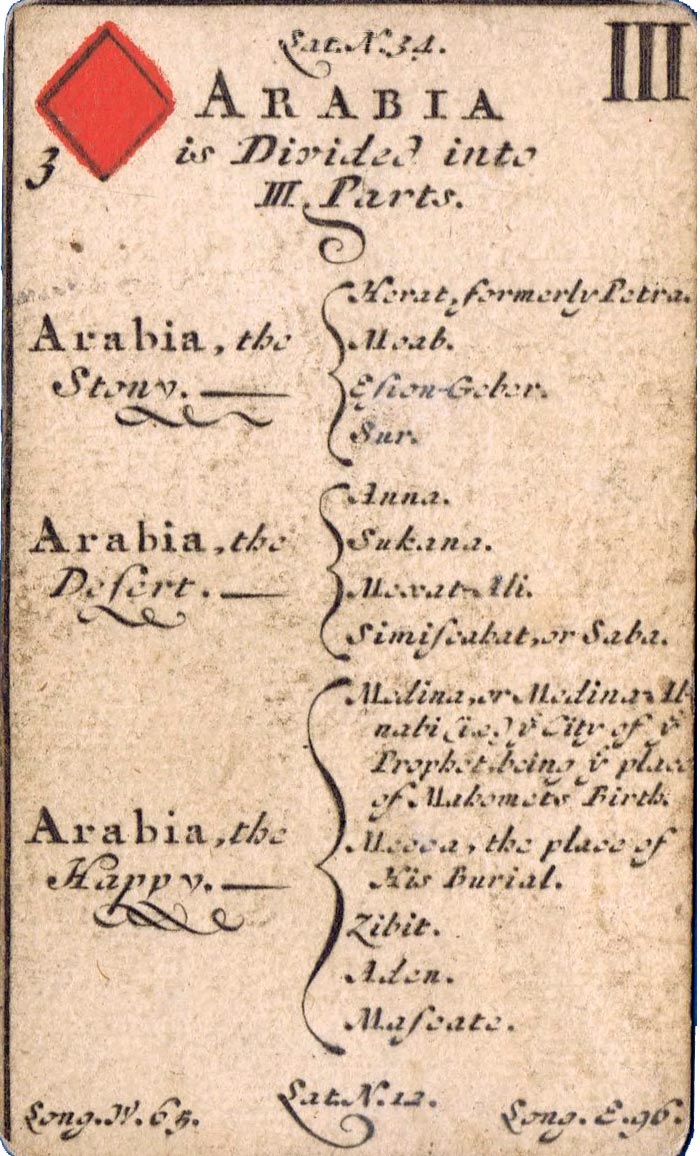 Lat. N. 34.
III
3
ARABIA
is Divided into
III. Parts.
Arabia, the
Stony.
Herat, formerly Petra.
Moab.
Eſion-Geber.
Sur.
Arabia, the
Deſert.
Anna.
Sukana.
Mexat-Ali.
Simiſcabat, or Saba.
Arabia, the
Happy.
Medina, or Medina Al-
nabi (i.e.) yͤ City of yͤ
Prophet being yͤ place
of Mahomets Birth.
Mecca, the place of
His Burial.
Zibit.
Aden.
Maſcate.
Long. W. 65.
Lat. N. 12.
Long. E. 96.